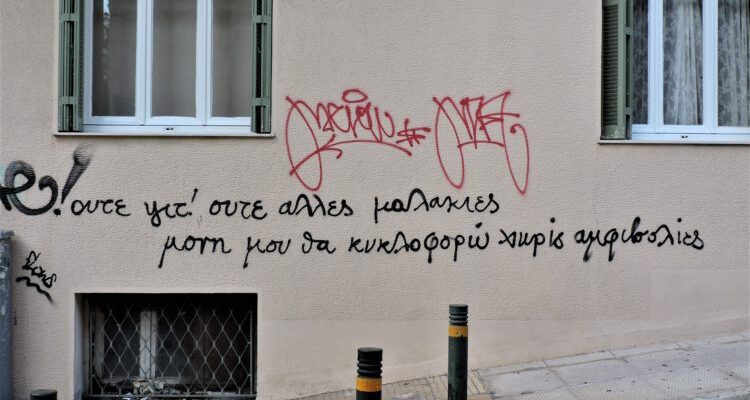 ουτε γιτ! ουτε αλλες μαλακιες
μονη μου θα κυκλοφορώ χωρίς αμφιβολίες